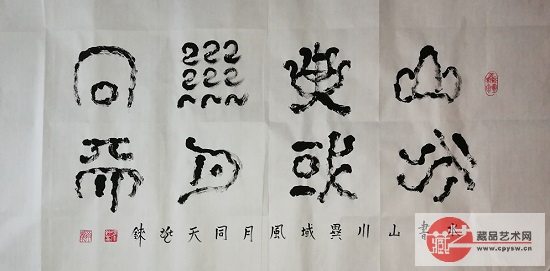 山川
異域
風月
同天
書山川異域風月同天
藏品艺术网
www.cpysw.cn